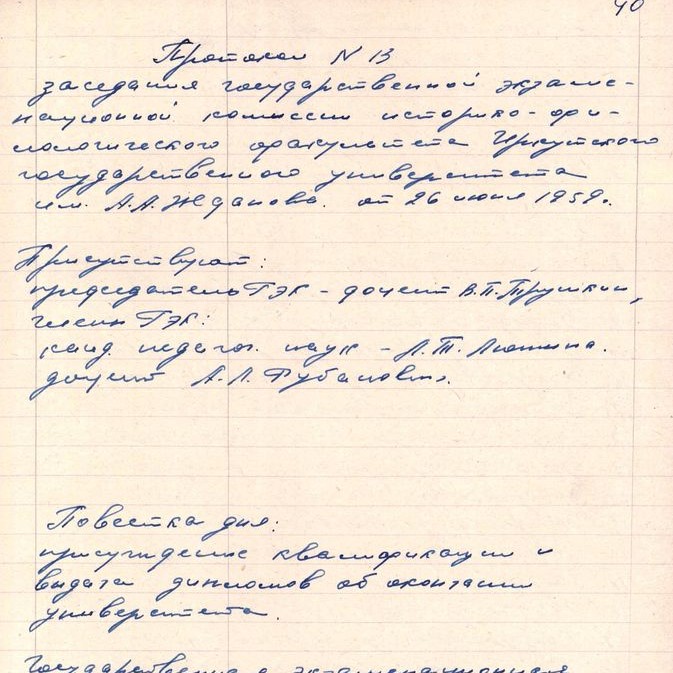 40
Протокол N 13
заседания государственной экзаме-
национной комиссии историко-фи-
лологического факультета Иркутского
государственного университета
им. А.А. Жданова. от 26 июня 1959г.
Присутствуют:
председатель ГЭК - доцент В.П. Трушкин,
члены ГЭК:
канд. педагог. наук - Л.Т. Люшина.
доцент А.Л.
Повестка дня:
присуждение квалификации и
выдача дипломов об окончании
университета.
Государственная экзаменационная